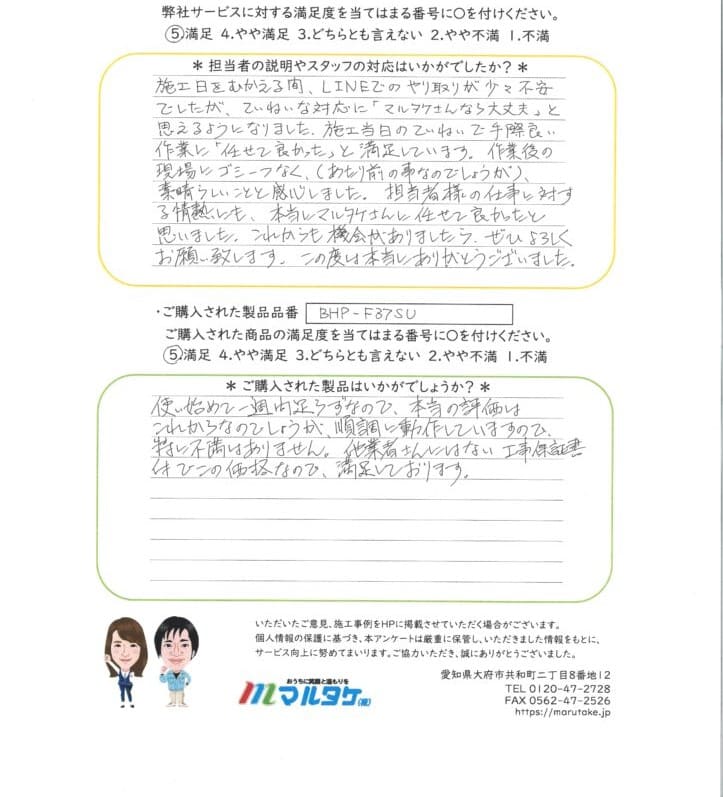 弊社サービスに対する満足度を当てはまる番号に○を付けください。
⑤満足 4.やや満足 3.どちらとも言えない 2.やや不満 1.不満
＊ 担当者の説明やスタッフの対応はいかがでしたか？ ＊
施工日をむかえる間、LINEでのやり取りが少々不安
でしたが、ていねいな対応に「マルタケさんなら大丈夫」と
思えるようになりました。施工当日のていねいで手際良い
作業に「任せて良かった」と満足しています。作業後の
現場にゴミ一つなく、(あたり前の事なのでしょうが)、
素晴らしいことと感心しました。担当者様の仕事に対す
る情熱にも、本当にマルタケさんに任せて良かったと
思いました。これからも機会がありましたら、ぜひよろしく
お願い致します。この度は本当にありがとうございました。
・ご購入された製品品番 BHP-F37SU
ご購入された商品の満足度を当てはまる番号に○を付けください。
⑤満足 4.やや満足 3.どちらとも言えない 2.やや不満 1.不満
＊ ご購入された製品はいかがでしょうか？ ＊
使い始めて一週間足らずなので、本当の評価は
これからなのでしょうが、順調に動作していますので、
特に不満はありません。他業者さんにはない工事保証書
付でこの価格なので、満足しております。
いただいたご意見、施工事例をHPに掲載させていただく場合がございます。
個人情報の保護に基づき、本アンケートは厳重に保管し、いただきました情報をもとに、
サービス向上に努めてまいります。ご協力いただき、誠にありがとうございました。
おうちに笑顔と温もりを
マルタケ(株)
愛知県大府市共和町二丁目8番地12
TEL 0120-47-2728
FAX 0562-47-2526
https://marutake.jp